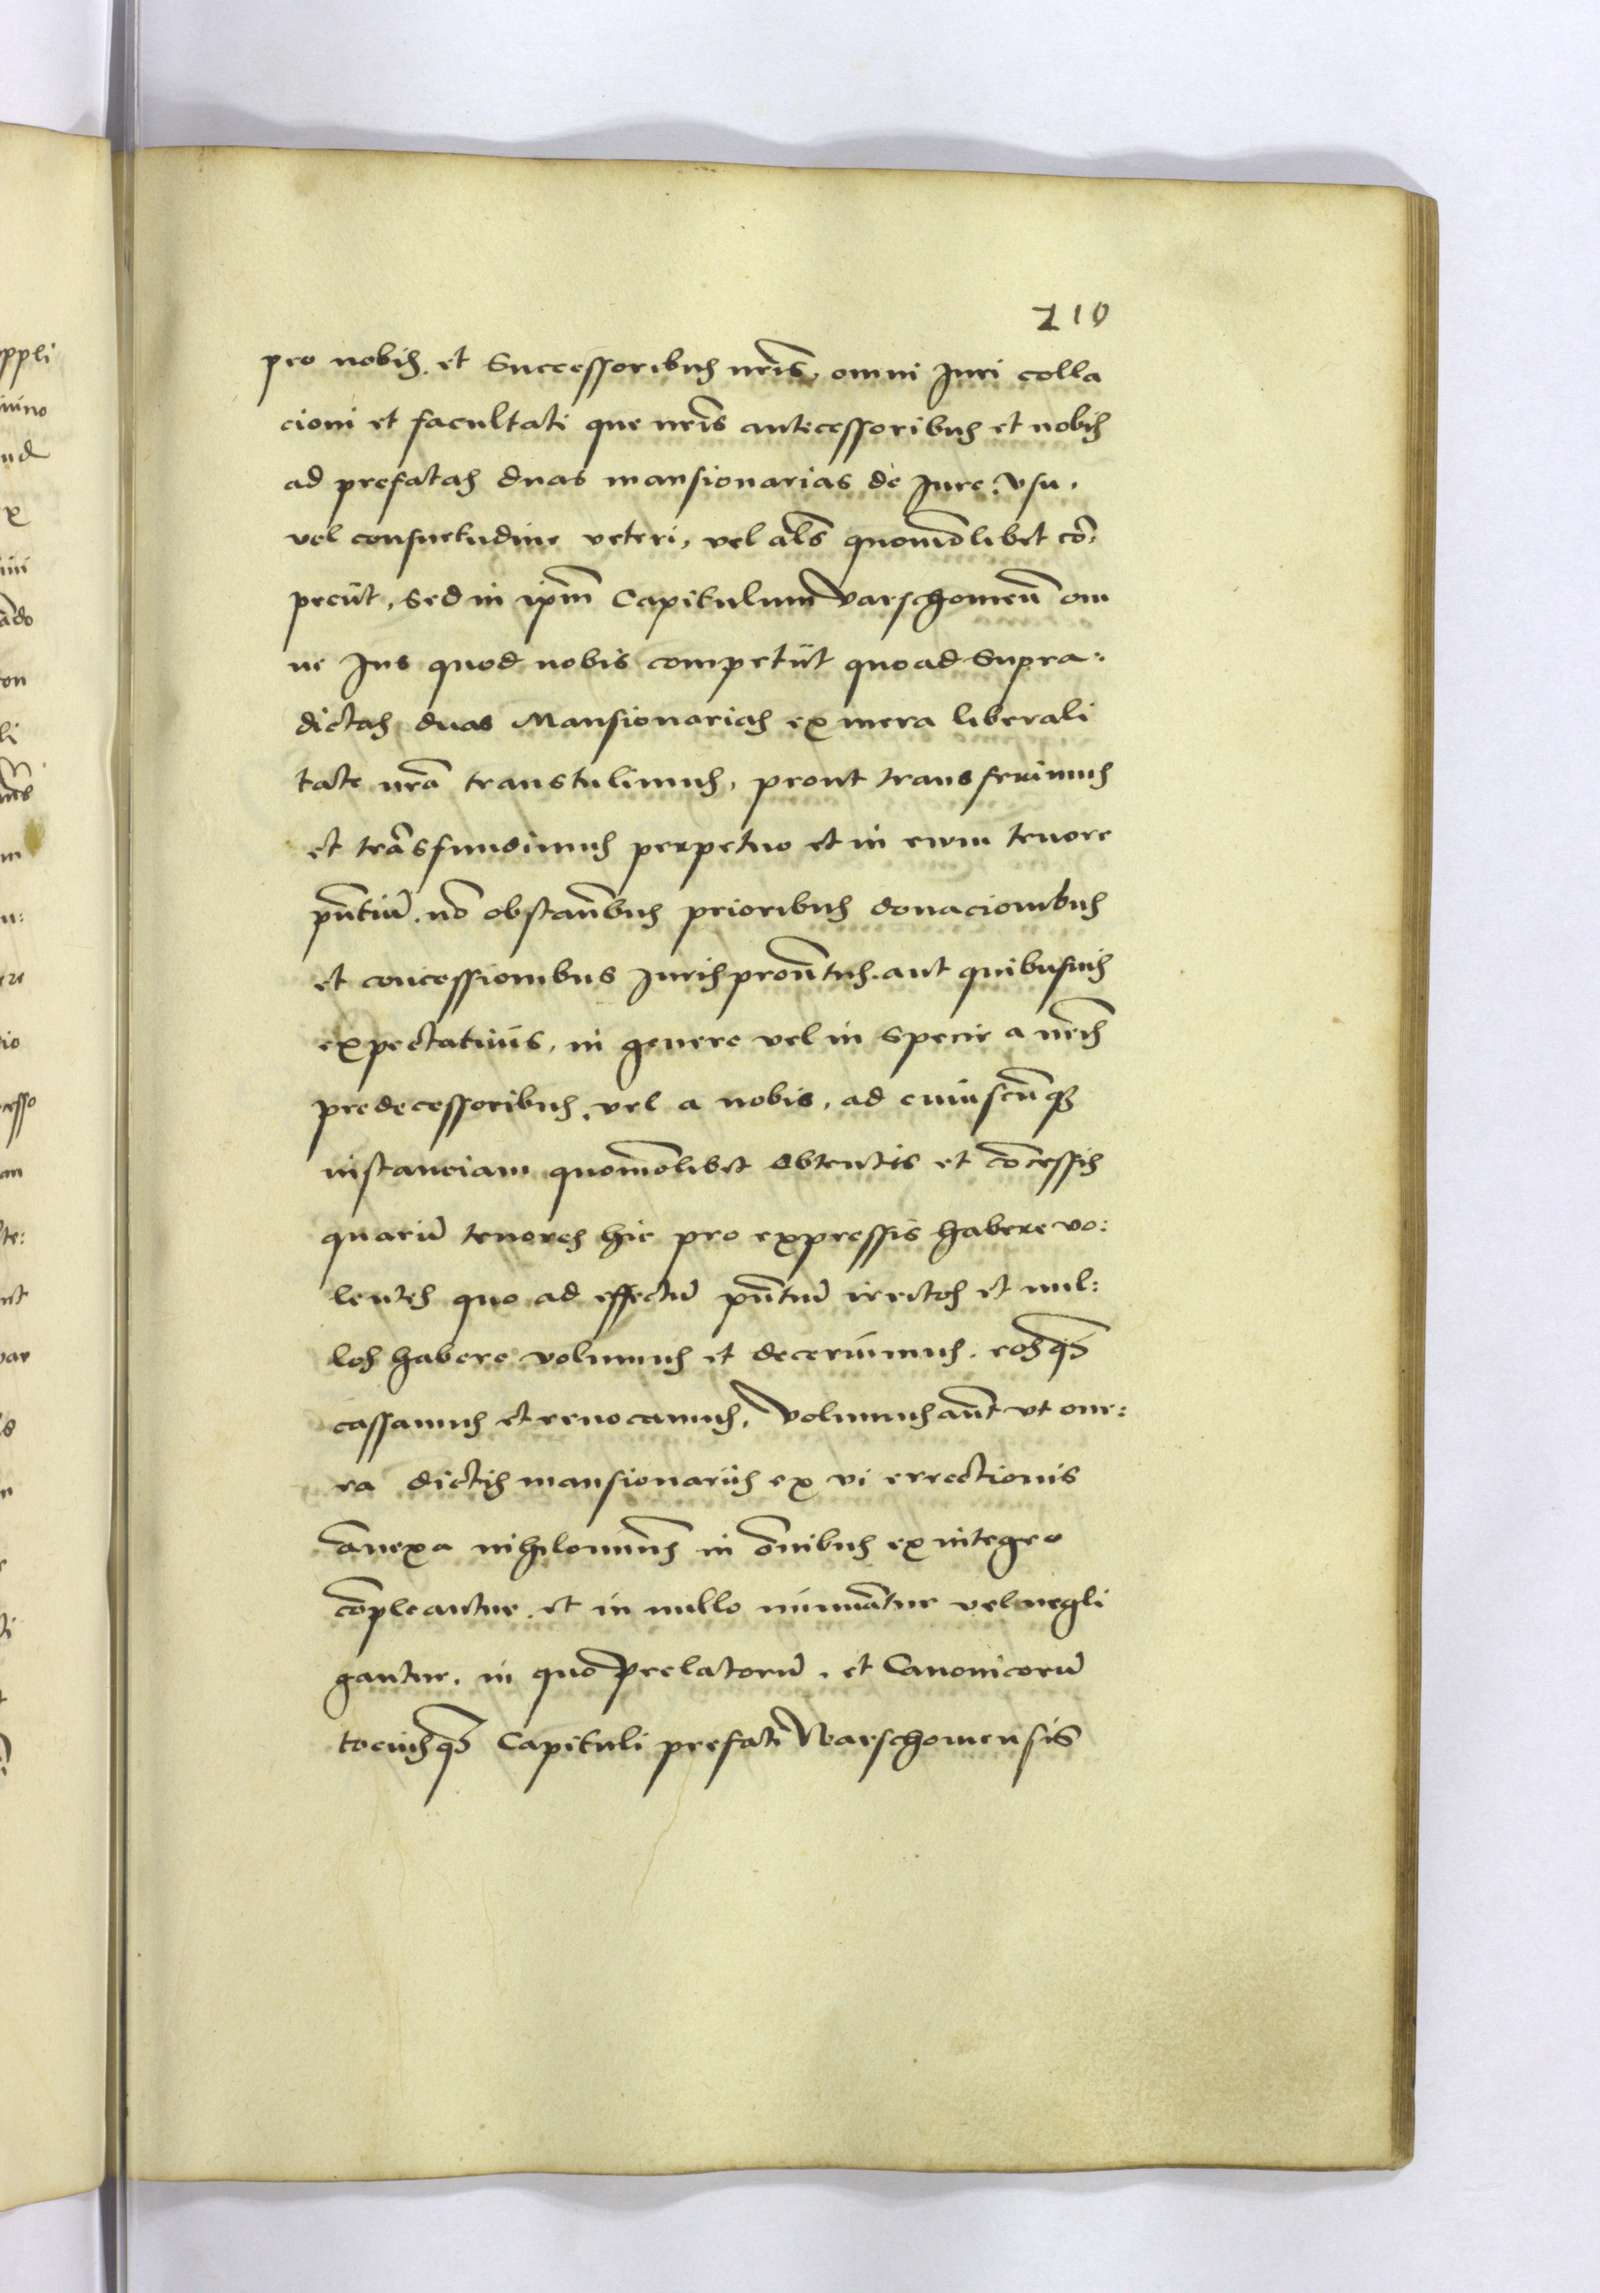 210
pro nobis et Successoribus nr̄is, omni Juri colla
cioni et facultati que nr̄is antecessoribus et nobis
ad prefatas duas mansionarias de Jure, vsu,
vel consuetudine veteri, vel al̄s quomōlibet cō:
peciit, Sed in ip̄m Capitulum Varschouien̄ om
ne Jus quod nobis competiit quoad Supra:
dictas duas Mansionarias ex mera liberali
tate nr̄a transtulimus, prout transferimus
et trāsfundimus perpetuo et in eum tenore
pn̄tiū. nō obstan̄bus prioribus donacionibus
et concessionibus Juris pron̄tus aut quibusuis
expectatiuis, in genere vel in specie a nr̄is
predecessoribus, vel a nobis, ad cuiuscūqꝫ
instanciam quomōlibet obtentis et cōcessis
quarū tenores hic pro expressis habere vo:
lentes quo ad effectū pn̄tiū irritos et nul:
los habere volumus et decernimus, eosqꝫ
cassamus et reuocamus, Volumus aūt vt one:
ra dictis mansionariis ex vi errectionis
ānexa nihilominus in ōnibus ex integro
cōpleantur et in nullo minuātur vel negli
gantur, in quo Prelatorū, et Canonicorū
tociusqꝫ Capituli prefati Warschouiensis